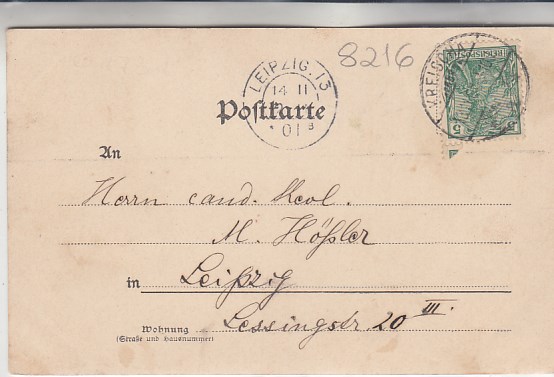 8216
LEIPZIG. 13
14 II
01
KREISCHA
REICHSPOST
5 5
Postkarte
An
Herrn cand. theol.
M. Hößler
in Leipzig
Lessingstr. 20 III.
Wohnung
(Straße und Hausnummer)